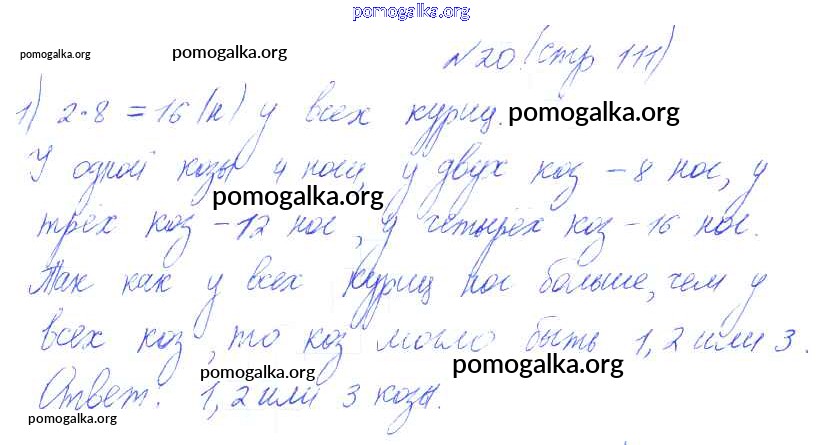 pomogalka.org
pomogalka.org
pomogalka.org
№20 (стр 111)
1) 2·8 = 16 (н) у всех куриц.
pomogalka.org
У одной козы 4 ноги, у двух коз - 8 ног, у
pomogalka.org
трёх коз - 12 ног, у четырёх коз - 16 ног.
Так как у всех куриц ног больше, чем у
всех коз, то коз могло быть 1, 2 или 3.
pomogalka.org
pomogalka.org
Ответ: 1, 2 или 3 козы.
pomogalka.org